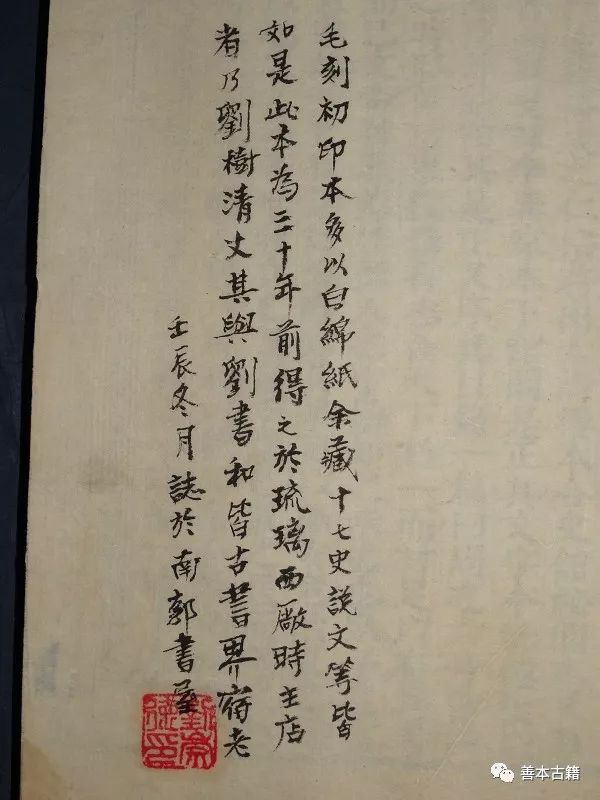 毛刻初印本多以白綿紙余藏十七史說文等皆
如是此本為三十年前得之於琉璃西廠時主店
者乃劉樹清丈其與劉書和皆古書界宿老
壬辰冬月誌於南郭書屋
善本古籍